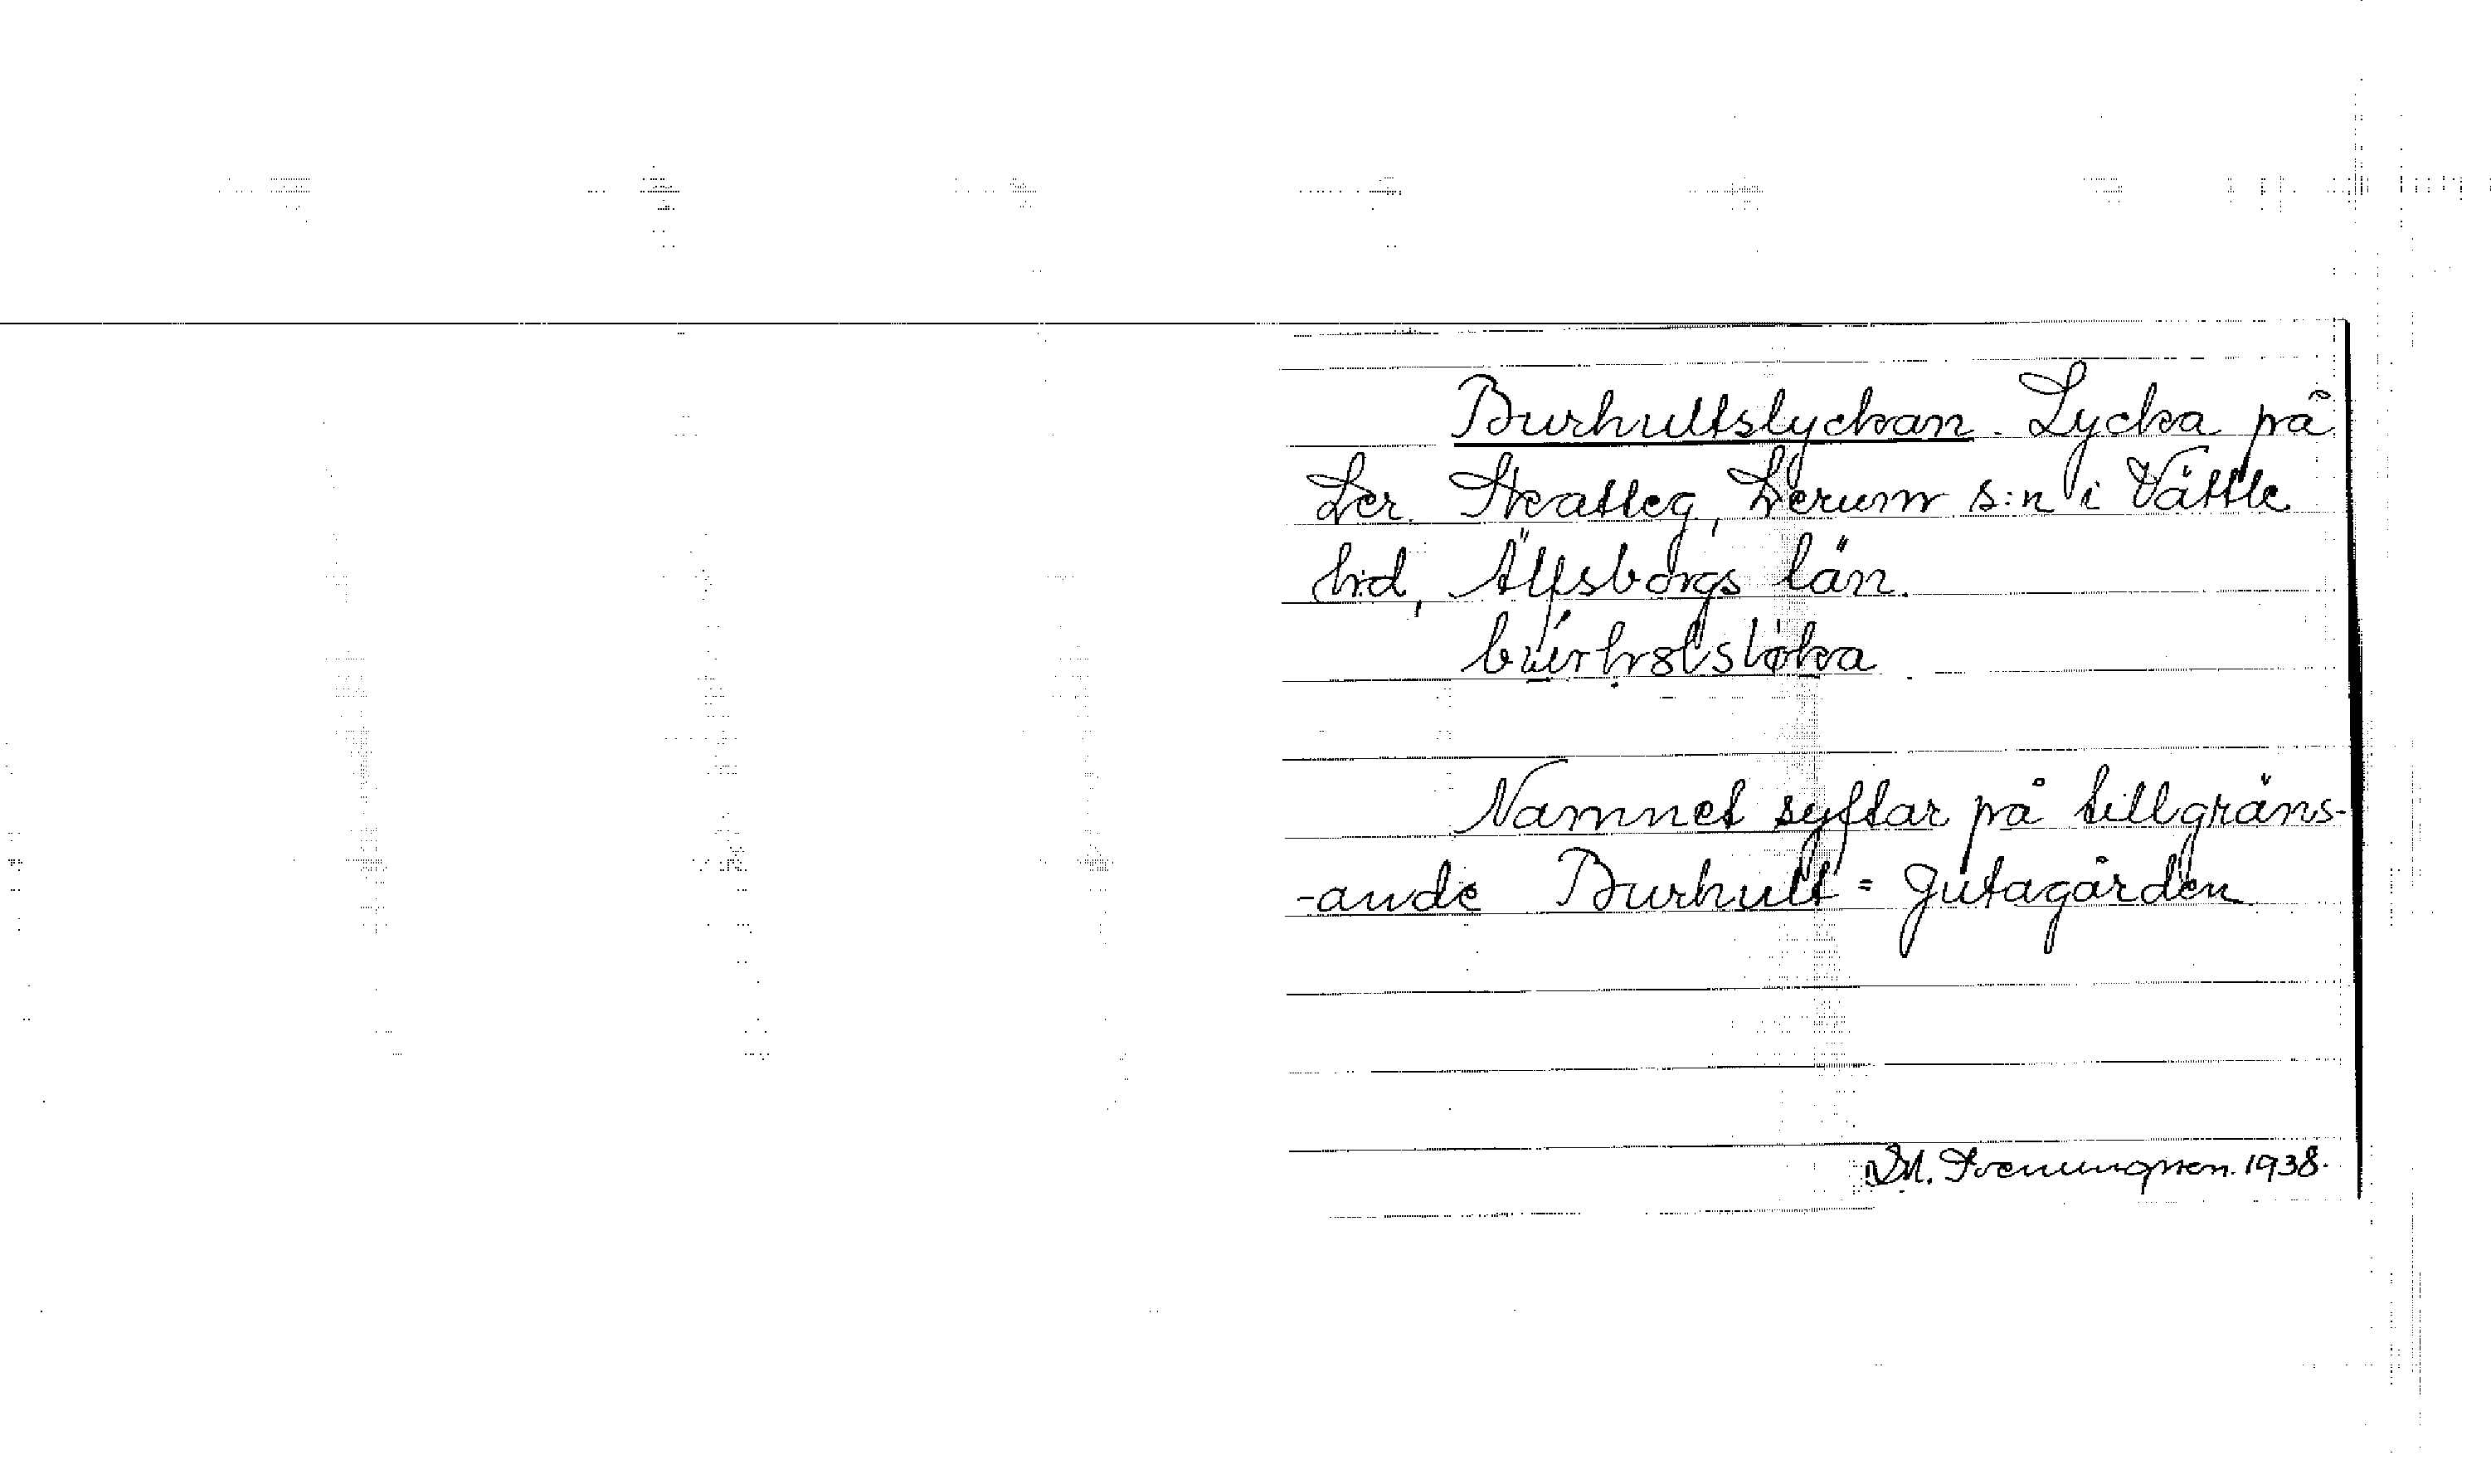 Burhultslyckan. Lycka på
Ler. Skatteg, Lerum s:n i Vättle
hd, Älfsborgs län.
Namnet syftar på tillgräns-
-ande Burhult = Jutagården
1938.